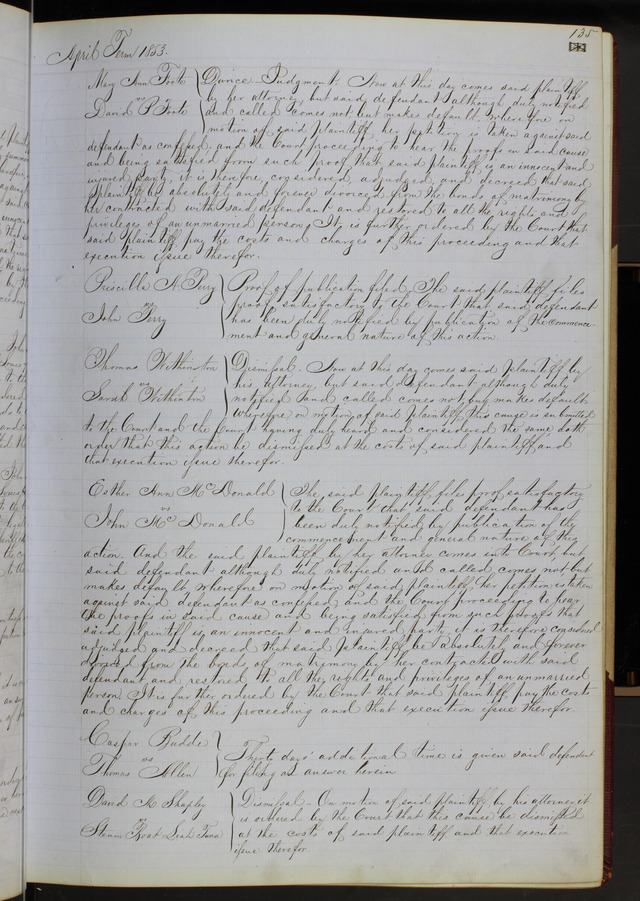 135
April Term 1853.
May Ann Foote
vs
David P Foote
Divorce Judgment. Now at this day comes said plaintiff
by her attorney, but said defendant although duly notified
and called comes not but makes default wherefore on
motion of said plaintiff her petition is taken against said
defendant as confessed, and the Court proceeding to hear the proofs in said cause
and being satisfied from such proof that said plaintiff is an innocent and
injured party, it is therefore, considered adjudged and decreed that said
plaintiff be absolutely and forever divorced from the bonds of matrimony by
her contracted with said defendant and restored to all the rights and
privileges of an unmarried person, It is further ordered by the Court that
said plaintiff pay the costs and charges of this proceeding and that
execution issue therefor.
Priscilla A Perry
vs
John Perry
Proof of publication filed. The said plaintiff files
proof satisfactory to the Court that said defendant
has been duly notified by publication of the commence-
ment and general nature of this action.
Thomas Withinton
vs
Sarah Withinton
Dismissal. Now at this day comes said plaintiff by
his attorney, but said defendant although duly
notified and called comes not but makes default
wherefore on motion of said plaintiff this cause is submitted
to the Court and the Court having duly heard and considered the same doth
order that this action be dismissed at the costs of said plaintiff and
that execution issue therefor.
Esther Ann McDonald
vs
John McDonald
The said plaintiff files proof satisfactory
to the Court that said defendant has
been duly notified by publication of the
commencement and general nature of this
action. And the said plaintiff by her attorney comes into Court, but
said defendant although duly notified and called comes not but
makes default wherefore on motion of said plaintiff, her petition is taken
against said defendant as confessed and the Court proceeding to hear
the proofs in said cause and being satisfied from such proofs that
said plaintiff is an innocent and injured party it is therefore considered
adjudged and decreed that said plaintiff be absolutely and forever
divorced from the bonds of matrimony by her contracted with said
defendant and restored to all the rights and privileges of an unmarried
person. It is further ordered by the Court that said plaintiff pay the costs
and charges of this proceeding and that execution issue therefor
Caspar Budde
vs
Thomas Allen
Thirty days' additional time is given said defendant
for filing an answer herein
David K Shapley
vs
Steam Boat
Dismissal - On motion of said plaintiff by his attorney it
is ordered by the Court that this cause be dismissed
at the costs of said plaintiff and that execution
issue therefor.